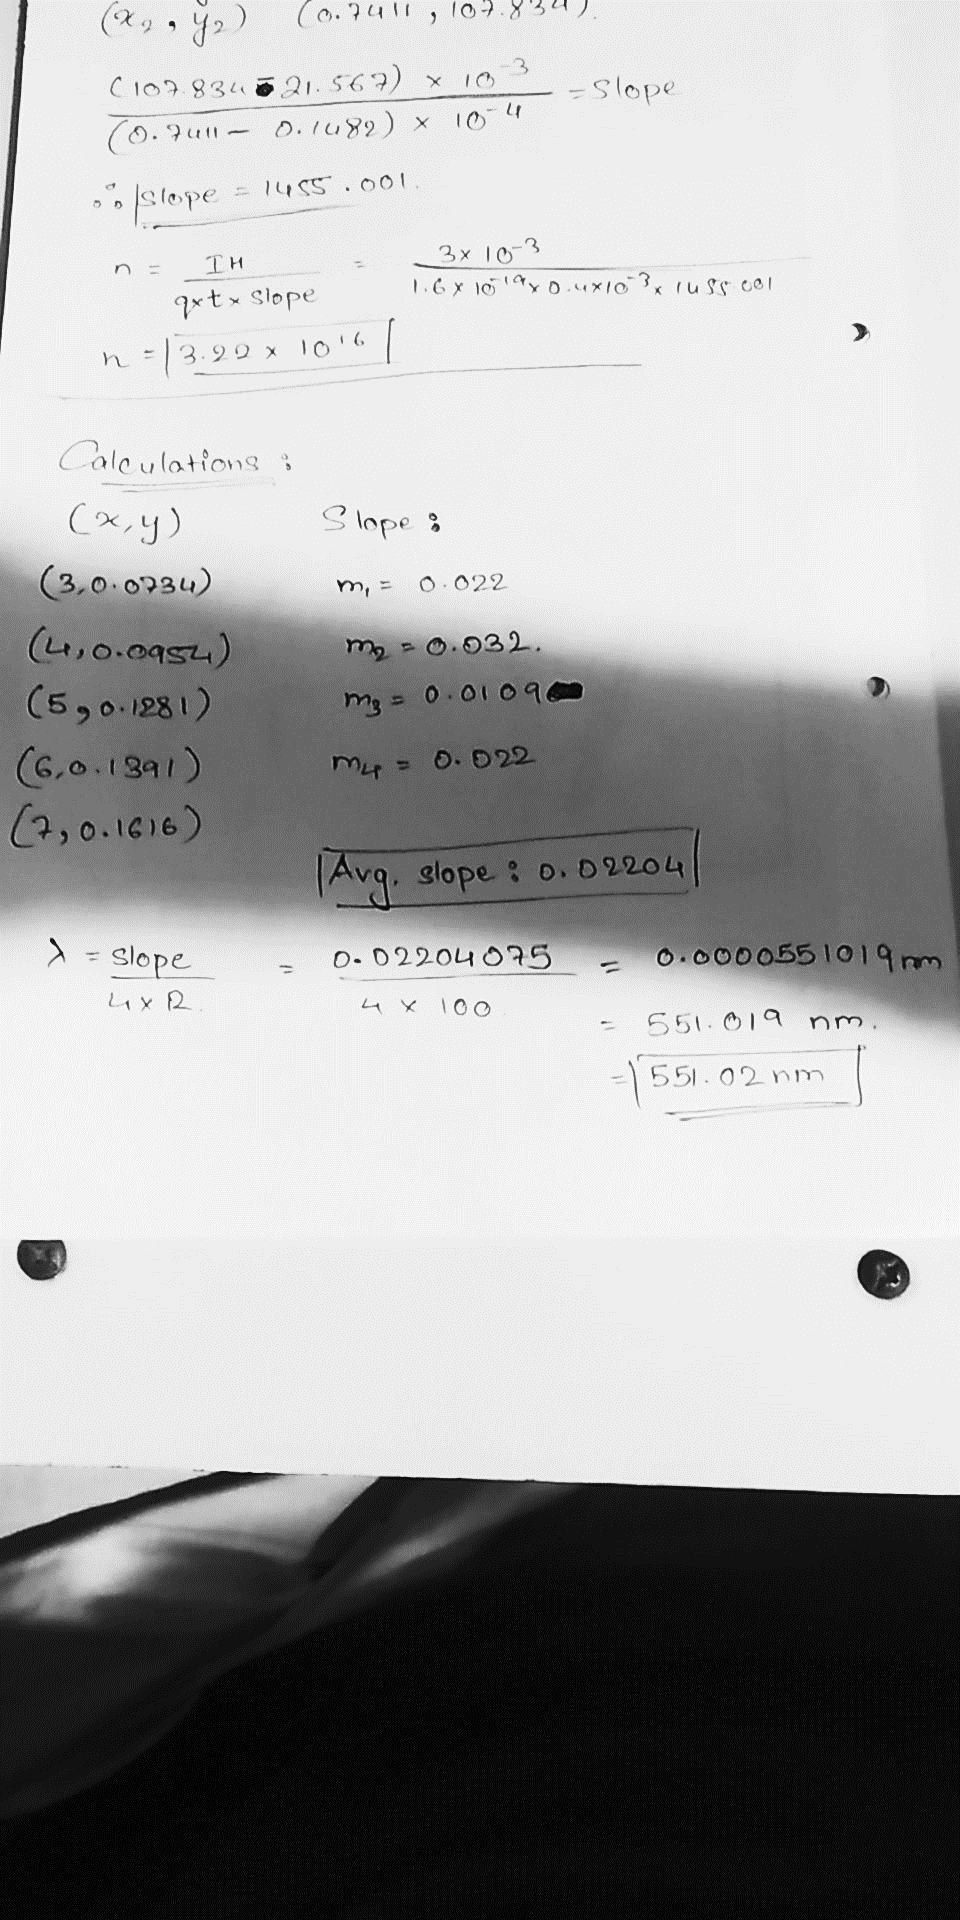 (x₂, y₂) (0.7411, 107.834).
(107.834 - 21.567) × 10⁻³ / (0.7411 - 0.1482) × 10⁻⁴ = Slope
∴ Slope = 1455.001.
n = IH / q×t×slope = 3×10⁻³ / 1.6×10⁻¹⁹×0.4×10⁻³×1455.001
n = 3.22 × 10¹⁶
Calculations :
(x,y) Slope :
(3,0.0734) m₁ = 0.022
(4,0.0954) m₂ = 0.032.
(5,0.1281) m₃ = 0.0109
(6,0.1391) m₄ = 0.022
(7,0.1616)
Avg. slope : 0.02204
λ = slope / 4×R. = 0.02204075 / 4 × 100 = 0.0000551019 nm
= 551.019 nm.
= 551.02 nm